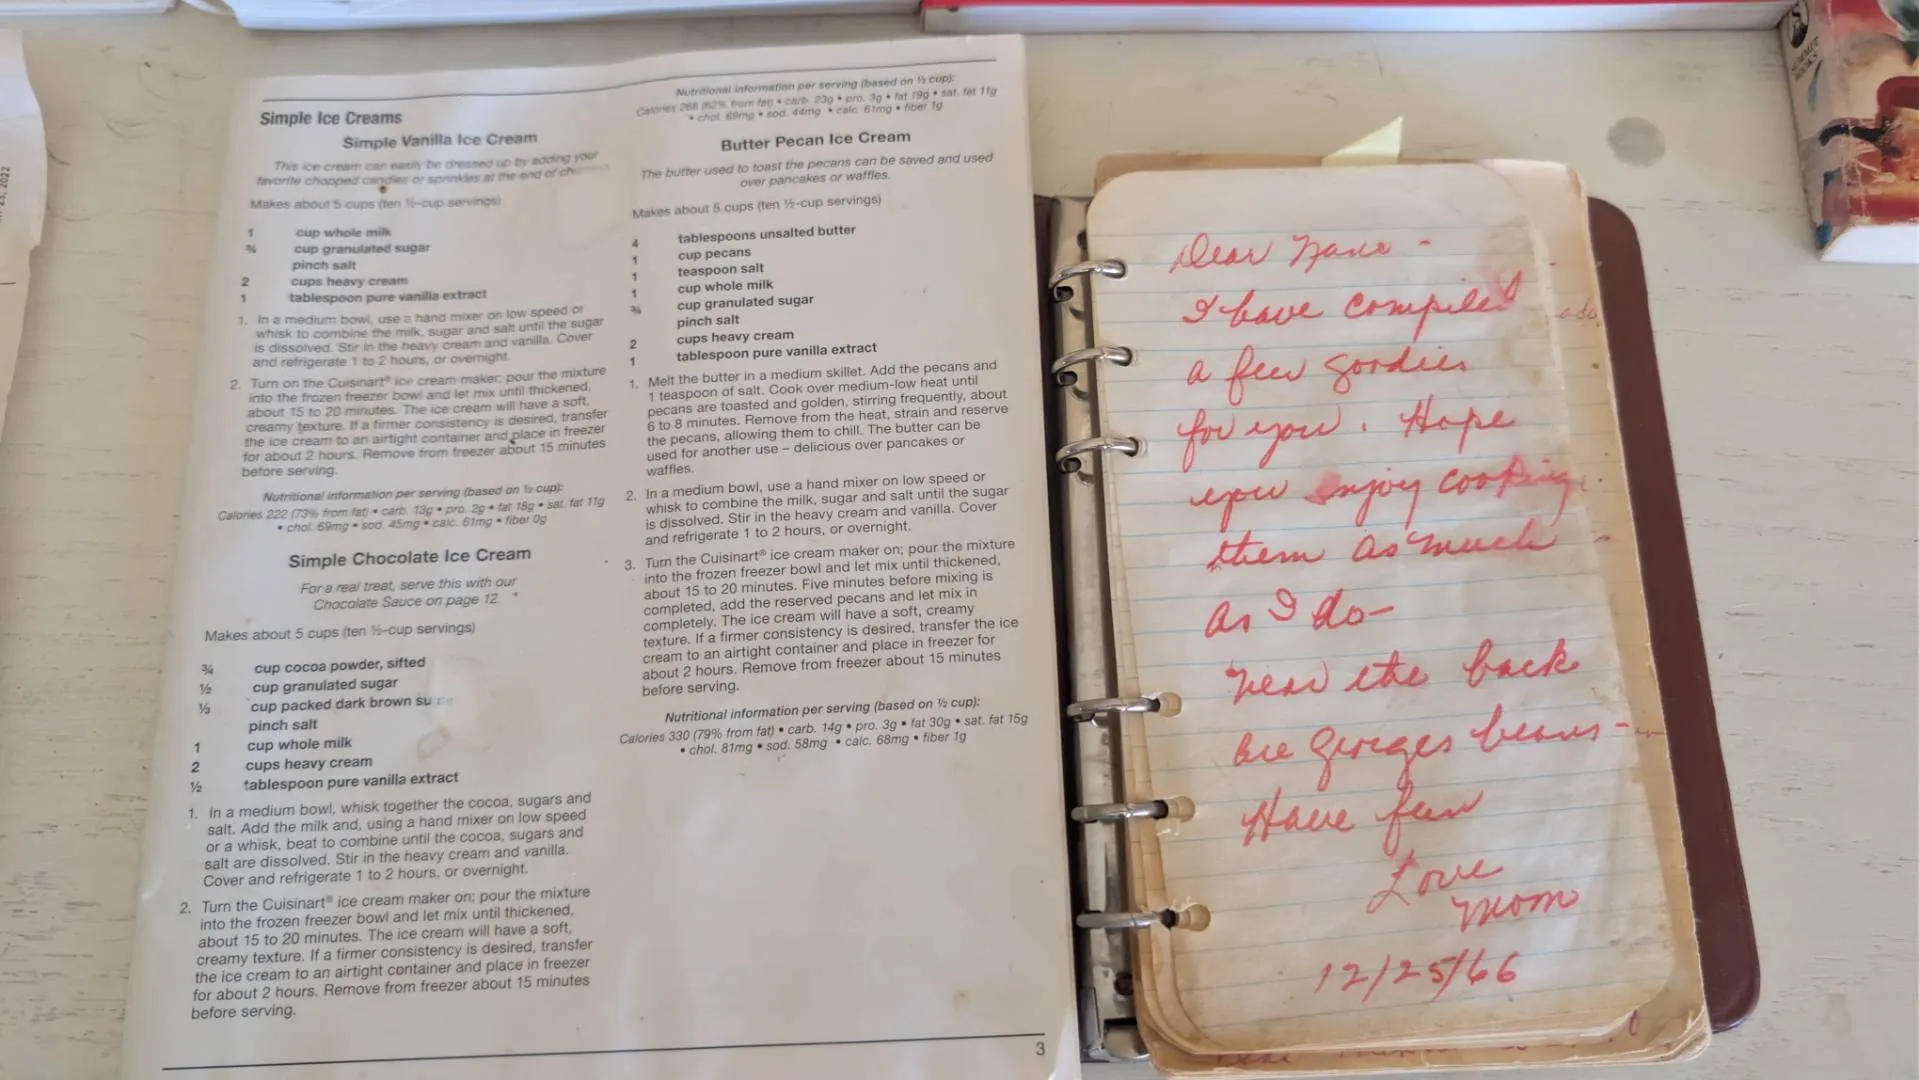 Simple Ice Creams
Simple Vanilla Ice Cream
This ice cream can easily be dressed up by adding your
favorite chopped candies or sprinkles at the end of
Makes about 5 cups (ten ½-cup servings)
1 cup whole milk
¾ cup granulated sugar
pinch salt
2 cups heavy cream
1 tablespoon pure vanilla extract
1. In a medium bowl, use a hand mixer on low speed or
whisk to combine the milk, sugar and salt until the sugar
is dissolved. Stir in the heavy cream and vanilla. Cover
and refrigerate 1 to 2 hours, or overnight.
2. Turn on the Cuisinart® ice cream maker; pour the mixture
into the frozen freezer bowl and let mix until thickened,
about 15 to 20 minutes. The ice cream will have a soft,
creamy texture. If a firmer consistency is desired, transfer
the ice cream to an airtight container and place in freezer
for about 2 hours. Remove from freezer about 15 minutes
before serving.
Nutritional information per serving (based on ½ cup):
Calories 222 (73% from fat) • carb. 13g • pro. 2g • fat 18g • sat. fat 11g
• chol. 69mg • sod. 45mg • calc. 61mg • fiber 0g
Simple Chocolate Ice Cream
For a real treat, serve this with our
Chocolate Sauce on page 12.
Makes about 5 cups (ten ½-cup servings)
¾ cup cocoa powder, sifted
½ cup granulated sugar
⅓ cup packed dark brown su
pinch salt
1 cup whole milk
2 cups heavy cream
½ tablespoon pure vanilla extract
1. In a medium bowl, whisk together the cocoa, sugars and
salt. Add the milk and, using a hand mixer on low speed
or a whisk, beat to combine until the cocoa, sugars and
salt are dissolved. Stir in the heavy cream and vanilla.
Cover and refrigerate 1 to 2 hours, or overnight.
2. Turn the Cuisinart® ice cream maker on; pour the mixture
into the frozen freezer bowl and let mix until thickened,
about 15 to 20 minutes. The ice cream will have a soft,
creamy texture. If a firmer consistency is desired, transfer
the ice cream to an airtight container and place in freezer
for about 2 hours. Remove from freezer about 15 minutes
before serving.
Nutritional information per serving (based on ½ cup):
Calories 268 (62% from fat) • carb. 23g • pro. 3g • fat 19g • sat. fat 11g
• chol. 69mg • sod. 44mg • calc. 61mg • fiber 1g
Butter Pecan Ice Cream
The butter used to toast the pecans can be saved and used
over pancakes or waffles.
Makes about 5 cups (ten ½-cup servings)
4 tablespoons unsalted butter
1 cup pecans
1 teaspoon salt
1 cup whole milk
¾ cup granulated sugar
pinch salt
2 cups heavy cream
1 tablespoon pure vanilla extract
1. Melt the butter in a medium skillet. Add the pecans and
1 teaspoon of salt. Cook over medium-low heat until
pecans are toasted and golden, stirring frequently, about
6 to 8 minutes. Remove from the heat, strain and reserve
the pecans, allowing them to chill. The butter can be
used for another use – delicious over pancakes or
waffles.
2. In a medium bowl, use a hand mixer on low speed or
whisk to combine the milk, sugar and salt until the sugar
is dissolved. Stir in the heavy cream and vanilla. Cover
and refrigerate 1 to 2 hours, or overnight.
3. Turn the Cuisinart® ice cream maker on; pour the mixture
into the frozen freezer bowl and let mix until thickened,
about 15 to 20 minutes. Five minutes before mixing is
completed, add the reserved pecans and let mix in
completely. The ice cream will have a soft, creamy
texture. If a firmer consistency is desired, transfer the ice
cream to an airtight container and place in freezer for
about 2 hours. Remove from freezer about 15 minutes
before serving.
Nutritional information per serving (based on ½ cup):
Calories 330 (79% from fat) • carb. 14g • pro. 3g • fat 30g • sat. fat 15g
• chol. 81mg • sod. 58mg • calc. 68mg • fiber 1g
3
Dear Nana -
I have compiled
a few goodies
for you. Hope
you enjoy cooking
them as much
as I do-
Near the back
are Georges beans-
Have fun
Love
Mom
12/25/66